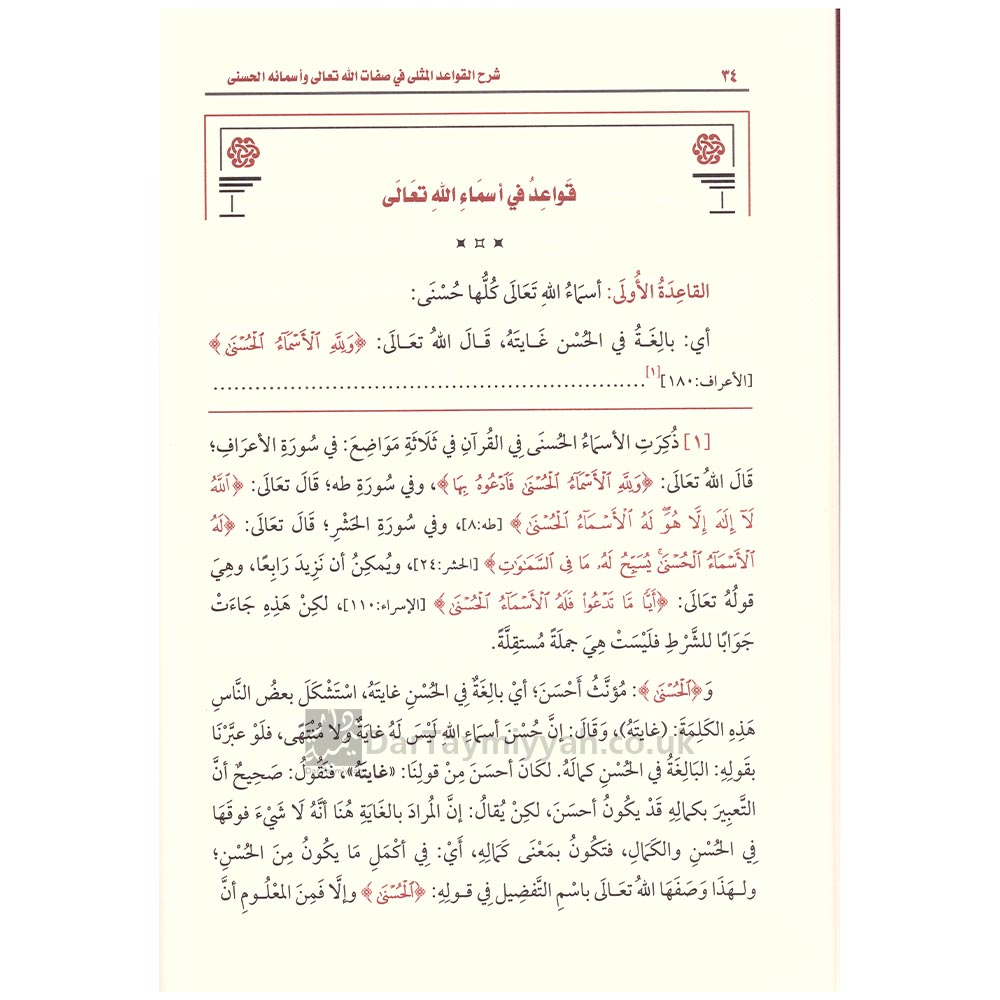 ٣٤
شرح القواعد المثلى في صفات الله تعالى وأسمائه الحسنى
قَواعِدُ في أسمَاءِ اللهِ تعَالَى
القاعِدَةُ الأُولَى: أسمَاءُ اللهِ تَعَالَى كُلُّها حُسْنَى:
أي: بالِغَـةُ في الحُسْن غَـايتَهُ، قَـالَ اللهُ تعَـالَى: ﴿وَلِلَّهِ ٱلْأَسْمَآءُ ٱلْحُسْنَىٰ﴾
[الأعراف:١٨٠][١]................................................................
[١] ذُكِرَتِ الأسمَاءُ الحُسنَى فِي القُرآنِ فِي ثَلَاثَةِ مَوَاضِعَ: في سُورَةِ الأعرَافِ؛
قَالَ اللهُ تعَالَى: ﴿وَلِلَّهِ ٱلْأَسْمَآءُ ٱلْحُسْنَىٰ فَٱدْعُوهُ بِهَا﴾، وفي سُورَةِ طه؛ قَالَ تعَالَى: ﴿ٱللَّهُ
لَآ إِلَٰهَ إِلَّا هُوَۖ لَهُ ٱلْأَسْمَآءُ ٱلْحُسْنَىٰ﴾ [طه:٨]، وفي سُورَةِ الحَشْرِ؛ قَالَ تعَالَى: ﴿لَهُ
ٱلْأَسْمَآءُ ٱلْحُسْنَىٰۚ يُسَبِّحُ لَهُۥ مَا فِى ٱلسَّمَٰوَٰتِ﴾ [الحشر:٢٤]، ويُمكِنُ أن نَزِيدَ رَابِعًا، وهِيَ
قولُهُ تعَالَى: ﴿أَيًّا مَّا تَدْعُوا۟ فَلَهُ ٱلْأَسْمَآءُ ٱلْحُسْنَىٰ﴾ [الإسراء:١١٠]، لكِنْ هَذِهِ جَاءَتْ
جَوَابًا للشَّرْطِ فلَيْسَتْ هِيَ جملَةً مُستقِلَّةً.
وَ﴿ٱلْحُسْنَىٰ﴾: مُؤنَّثُ أَحْسَنَ؛ أيْ بالِغَةٌ فِي الحُسْنِ غايتَهُ، اسْتَشْكَلَ بعضُ النَّاسِ
هَذِهِ الكَلِمَةَ: (غايتَهُ)، وَقَالَ: إنَّ حُسْنَ أسمَاءِ اللهِ لَيْسَ لَهُ غايَةٌ ولا مُنْتَهَى، فلَوْ عبَّرْنَا
بقَولِهِ: البَالِغَةُ في الحُسْنِ كمالَهُ. لكَانَ أحسَنَ مِنْ قولِنَا: «غايتَهُ»، فنَقُولُ: صَحِيحٌ أنَّ
التَّعبِيرَ بكمالِهِ قَدْ يكُونُ أحسَنَ، لكِنْ يُقالُ: إنَّ المُرادَ بالغَايَةِ هُنَا أنَّهُ لَا شَيْءَ فوقَهَا
فِي الحُسْنِ والكَمَالِ، فتَكُونُ بمَعْنَى كَمَالِهِ، أَيْ: فِي أكْمَلِ مَا يكُونُ مِنَ الحُسْنِ؛
ولـهَذَا وَصَفَهَا اللهُ تعَـالَى باسْمِ التَّفضِيل فِي قولِهِ: ﴿ٱلْحُسْنَىٰ﴾ وإلَّا فَمِنَ المعْلُـومِ أنَّ
DarTaymiyyan.co.uk